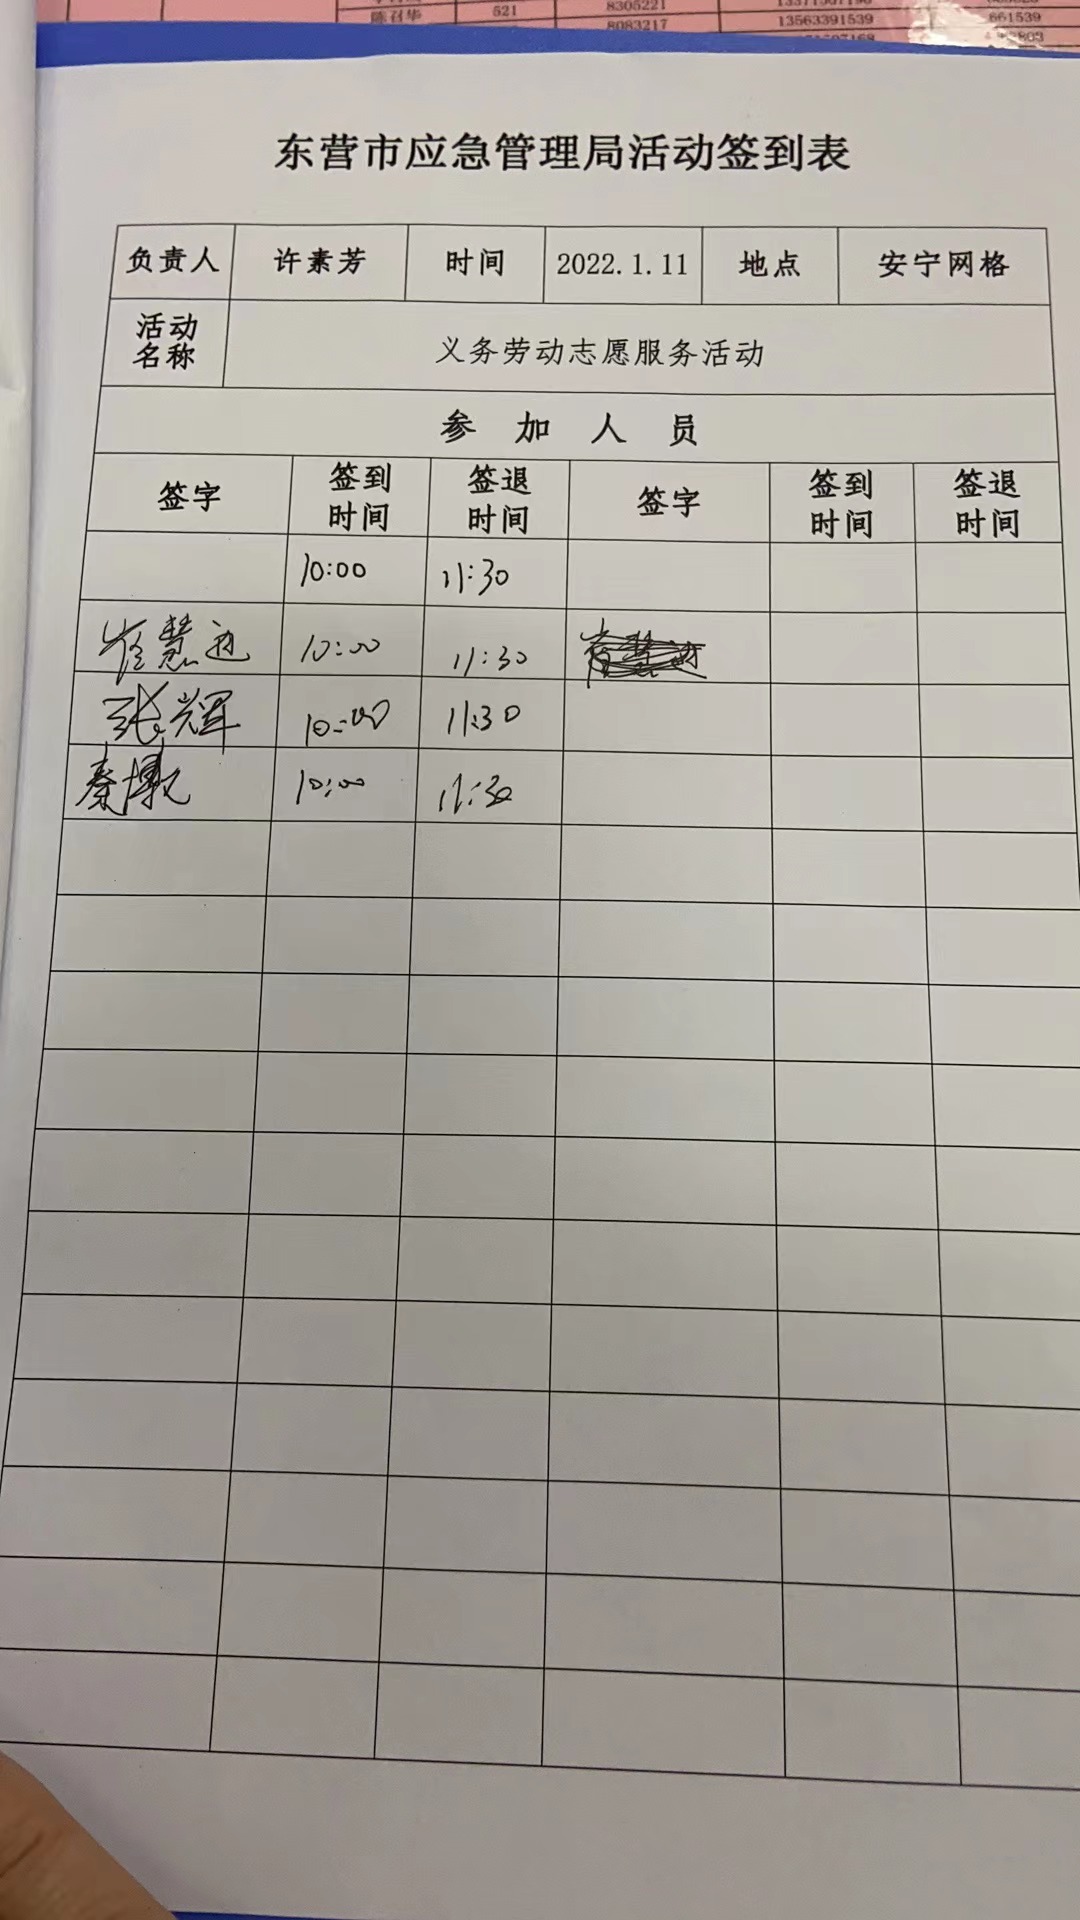 陈召华 521 8305221
8083217 13563391539 661539
东营市应急管理局活动签到表
负责人 许素芳 时间 2022.1.11 地点 安宁网格
活动名称 义务劳动志愿服务活动
参加人员
签字 签到时间 签退时间 签字 签到时间 签退时间
10:00 11:30
崔慧 10:00 11:30
张辉 10:00 11:30
秦 10:00 11:30